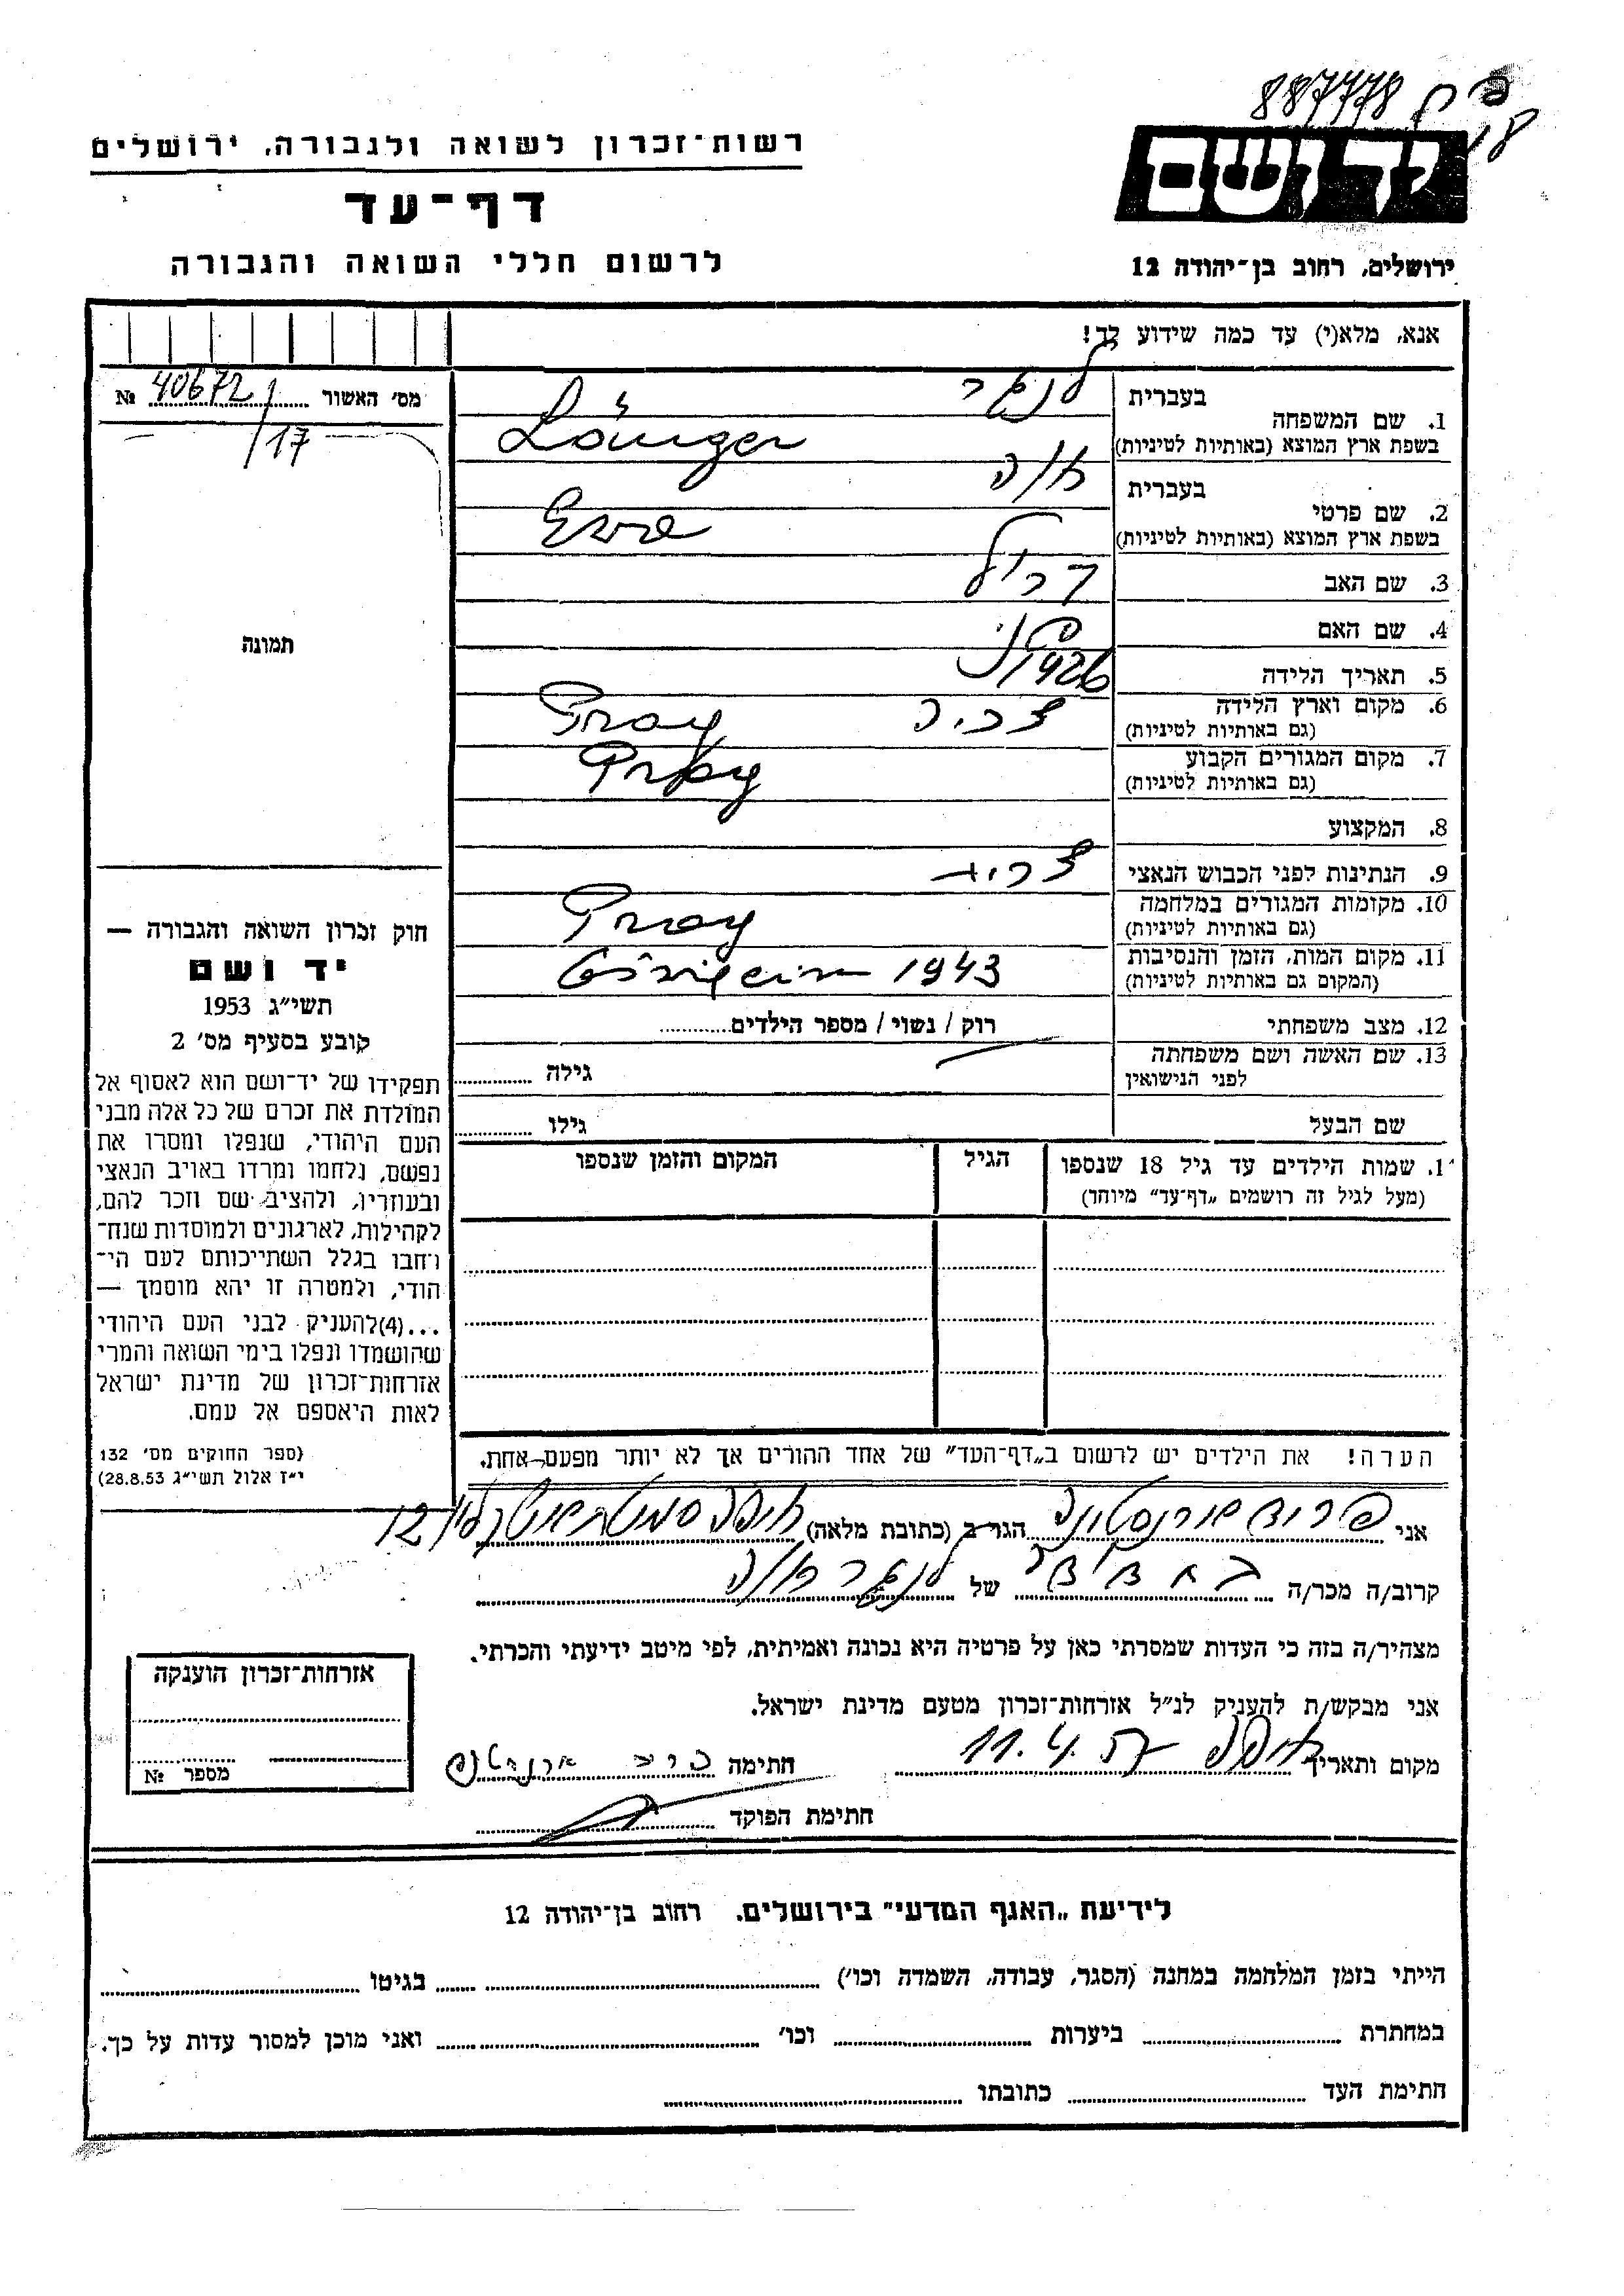 887778
יד ושם
רשות־זכרון לשואה ולגבורה, ירושלים
דף־עד
לרשום חללי השואה והגבורה
ירושלים, רחוב בן־יהודה 12
אנא, מלא(י) עד כמה שידוע לך!
מס׳ האשור № 40672/17
תמונה
1. שם המשפחה
בעברית לנגר
בשפת ארץ המוצא (באותיות לטיניות) Länger
2. שם פרטי
בעברית אוה
בשפת ארץ המוצא (באותיות לטיניות) Eva
3. שם האב
4. שם האם
5. תאריך הלידה 1926
6. מקום וארץ הלידה
(גם באותיות לטיניות) Prag
7. מקום המגורים הקבוע
(גם באותיות לטיניות) Prag
8. המקצוע
9. הנתינות לפני הכבוש הנאצי
10. מקומות המגורים במלחמה
(גם באותיות לטיניות) Prag
11. מקום המות, הזמן והנסיבות
(המקום גם באותיות לטיניות) 1943
12. מצב משפחתי רוק / נשוי / מספר הילדים
13. שם האשה ושם משפחתה
לפני הנישואין
גילה
שם הבעל גילו
1. שמות הילדים עד גיל 18 שנספו
(מעל לגיל זה רושמים „דף־עד” מיוחד)
הגיל
המקום והזמן שנספו
חוק זכרון השואה והגבורה —
יד ושם
תשי״ג 1953
קובע בסעיף מס׳ 2
תפקידו של יד־ושם הוא לאסוף אל
המולדת את זכרם של כל אלה מבני
העם היהודי, שנפלו ומסרו את
נפשם, נלחמו ומרדו באויב הנאצי
ובעוזריו, ולהציב שם וזכר להם,
לקהילות, לארגונים ולמוסדות שנח־
רבו בגלל השתייכותם לעם הי־
הודי, ולמטרה זו יהא מוסמך —
...(4)להעניק לבני העם היהודי
שהושמדו ונפלו בימי השואה והמרי
אזרחות־זכרון של מדינת ישראל
לאות היאספם אל עמם.
(ספר החוקים מס׳ 132
י״ז אלול תשי״ג 28.8.53)
הערה! את הילדים יש לרשום ב„דף־העד” של אחד ההורים אך לא יותר מפעם־אחת.
אני הגר ב (כתובת מלאה) חיפה 12
קרוב/ה מכר/ה של לנגר אוה
מצהיר/ה בזה כי העדות שמסרתי כאן על פרטיה היא נכונה ואמיתית, לפי מיטב ידיעתי והכרתי.
אני מבקש/ת להעניק לנ״ל אזרחות־זכרון מטעם מדינת ישראל.
מקום ותאריך חיפה 11.4.57 חתימה
חתימת הפוקד
אזרחות־זכרון הוענקה
מספר №
לידיעת „האגף המדעי” בירושלים, רחוב בן־יהודה 12
הייתי בזמן המלחמה במחנה (הסגר, עבודה, השמדה וכו׳) בגיטו
במחתרת ביערות וכו׳ ואני מוכן למסור עדות על כך.
חתימת העד כתובתו